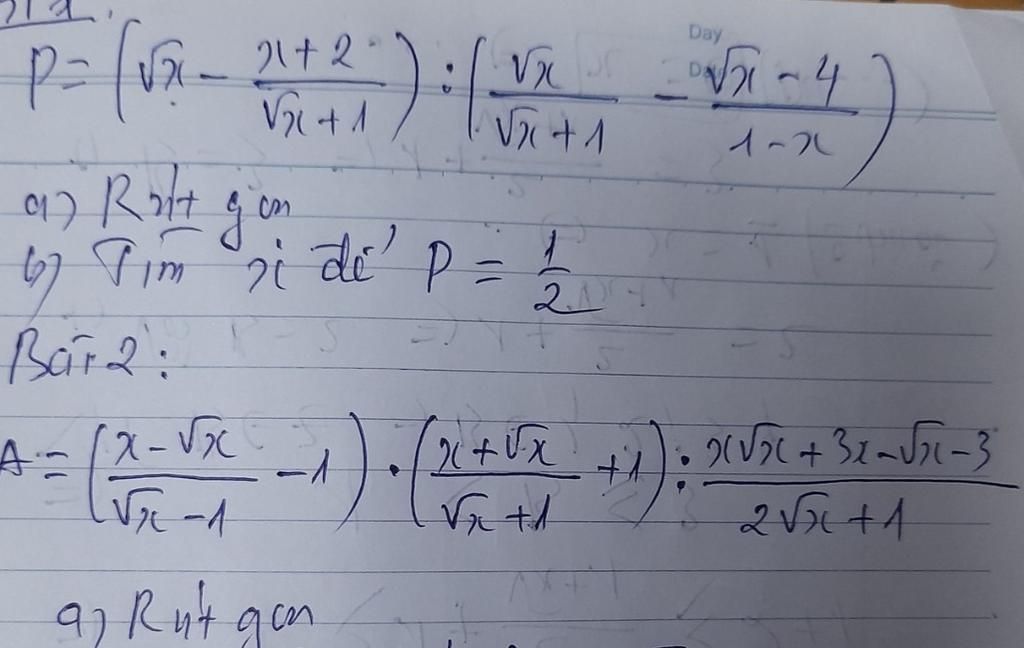 Day
P = (√x - (x + 2)/(√x + 1)) : (√x/(√x + 1) - (√x - 4)/(1 - x))
a) Rút gọn
b) Tìm x để P = 1/2
Bài 2:
A = ((x - √x)/(√x - 1) - 1) . ((x + √x)/(√x + 1) + 1) : (x√x + 3x - √x - 3)/(2√x + 1)
a) Rút gọn